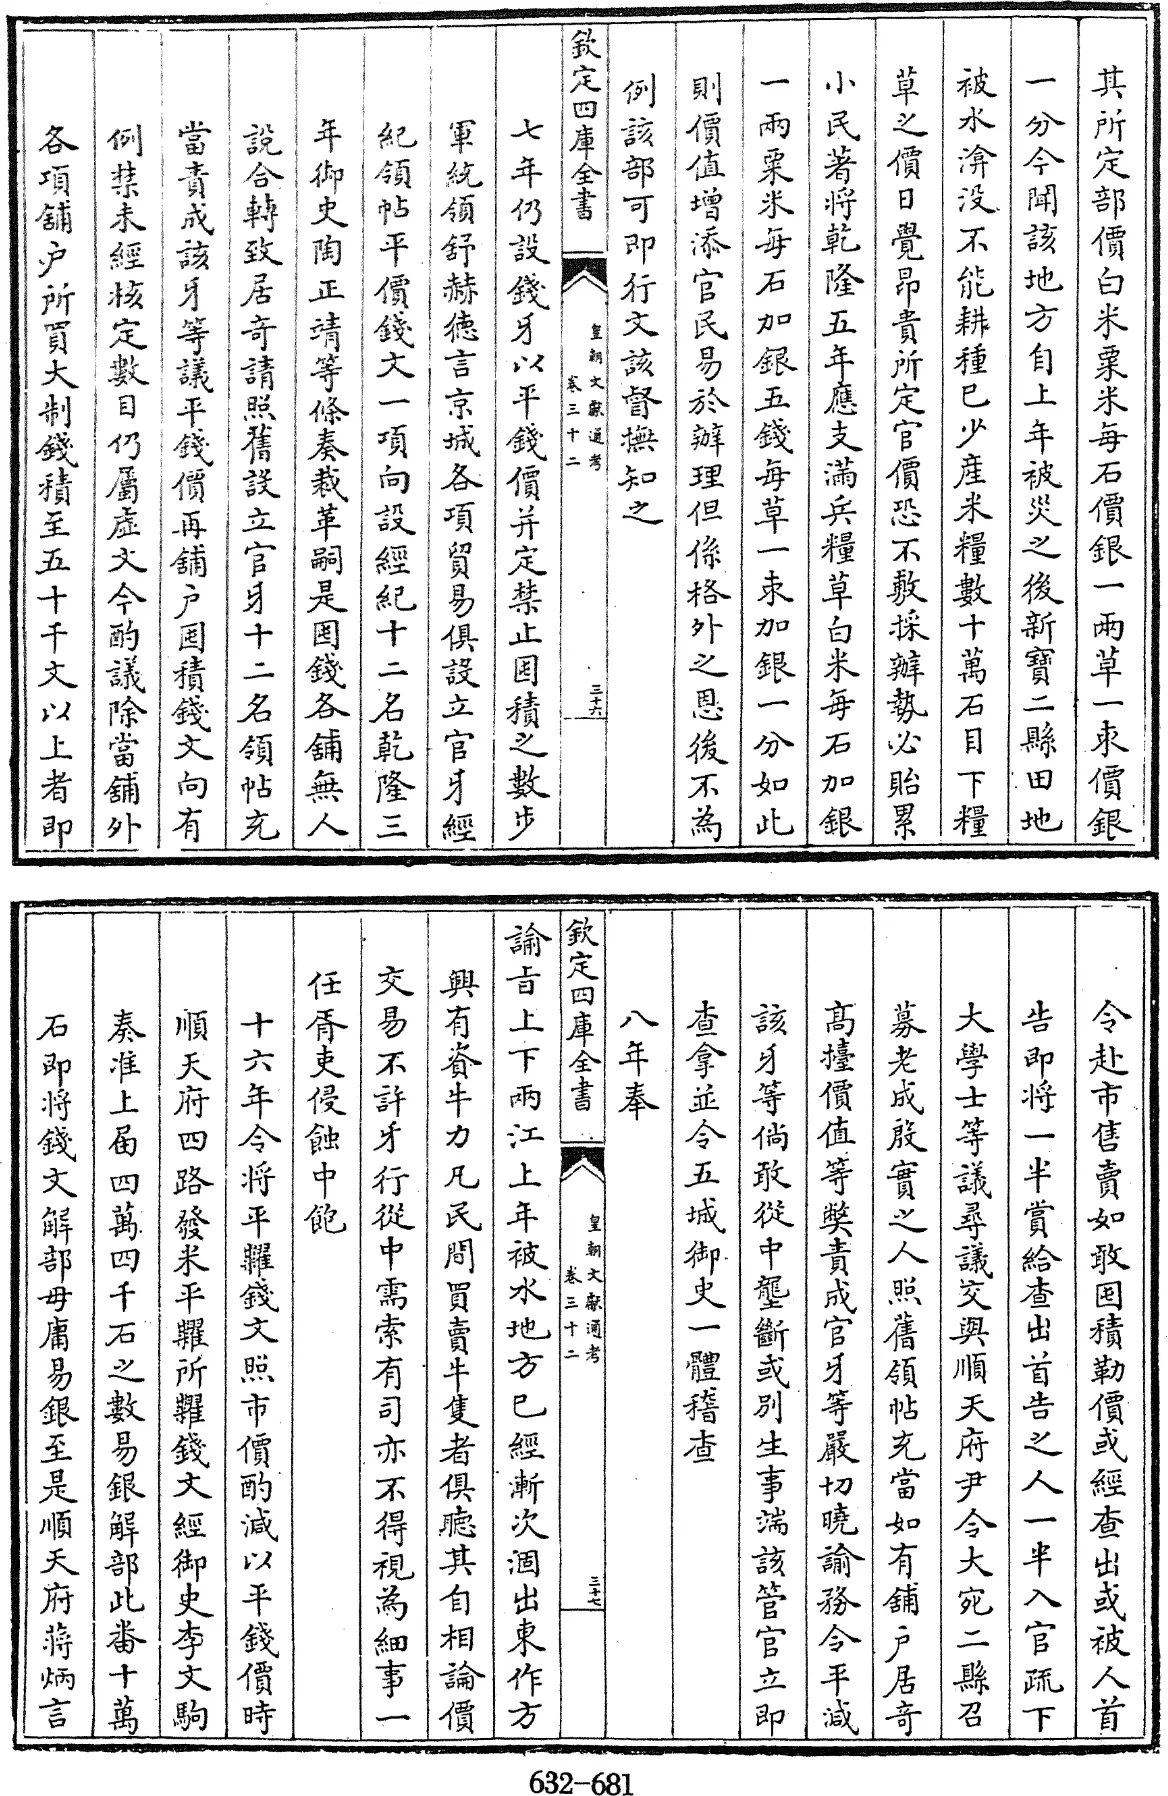 其所定部價白米粟米每石價銀一兩草一束價銀
一分今聞該地方自上年被災之後新寶二縣田地
被水渰没不能耕種已少産米糧數十萬石目下糧
草之價日覺昂貴所定官價恐不敷採辦勢必貽累
小民著將乾隆五年應支滿兵糧草白米每石加銀
一兩粟米每石加銀五錢每草一束加銀一分如此
則價值增添官民易於辦理但係格外之恩後不為
例該部可即行文該督撫知之
欽定四庫全書
皇朝文獻通考
卷三十二
三十六
七年仍設錢牙以平錢價并定禁止囤積之數步
軍統領舒赫德言京城各項貿易俱設立官牙經
紀領帖平價錢文一項向設經紀十二名乾隆三
年御史陶正靖等條奏裁革嗣是囤錢各舖無人
說合轉致居奇請照舊設立官牙十二名領帖充
當責成該牙等議平錢價再舖户囤積錢文向有
例禁未經核定數目仍屬虛文今酌議除當舖外
各項舖户所買大制錢積至五十千文以上者即
令赴市售賣如敢囤積勒價或經查出或被人首
告即將一半賞給查出首告之人一半入官疏下
大學士等議尋議交與順天府尹令大宛二縣召
募老成殷實之人照舊領帖充當如有舖户居奇
髙擡價值等獘責成官牙等嚴切曉諭務令平減
該牙等倘敢從中壟斷或别生事端該管官立即
查拿並令五城御史一體稽查
八年奉
欽定四庫全書
皇朝文獻通考
卷三十二
三十七
諭旨上下兩江上年被水地方已經漸次涸出東作方
興有資牛力凡民間買賣牛隻者俱聽其自相論價
交易不許牙行從中需索有司亦不得視為細事一
任胥吏侵蝕中飽
十六年令將平糶錢文照市價酌減以平錢價時
順天府四路發米平糶所糶錢文經御史李文駒
奏准上届四萬四千石之數易銀解部此畨十萬
石即將錢文解部毋庸易銀至是順天府蔣炳言
632-681